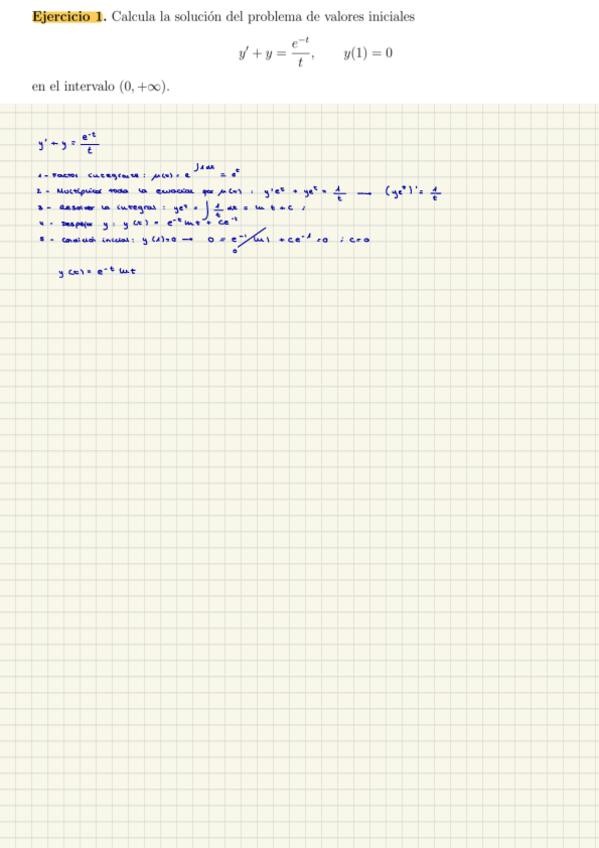 Ejercicio 1. Calcula la solución del problema de valores iniciales
y′ + y = e^{-t}/t,    y(1) = 0
en el intervalo (0, +∞).
y' + y = e^{-t}/t
1 - Factor integrante: μ(t) = e^{∫1dt} = e^t
2 - Multiplicar toda la ecuación por μ(t): y'e^t + ye^t = 1/t → (ye^t)' = 1/t
3 - Resolver la integral: ye^t = ∫ 1/t dt = ln t + C;
4 - Despejar y: y(t) = e^{-t} ln t + Ce^{-t}
5 - Condición inicial: y(1)=0 → 0 = e^{-1} ln 1 + Ce^{-1} = 0; C=0
0
y(t) = e^{-t} ln t